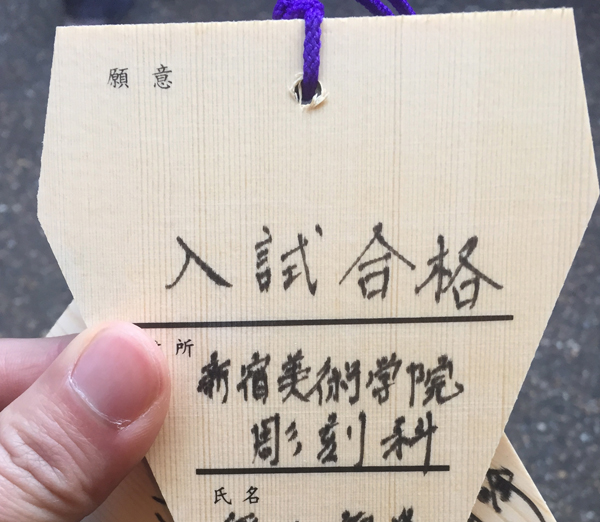 願意
入試合格
所
新宿美術学院
彫刻科
氏名